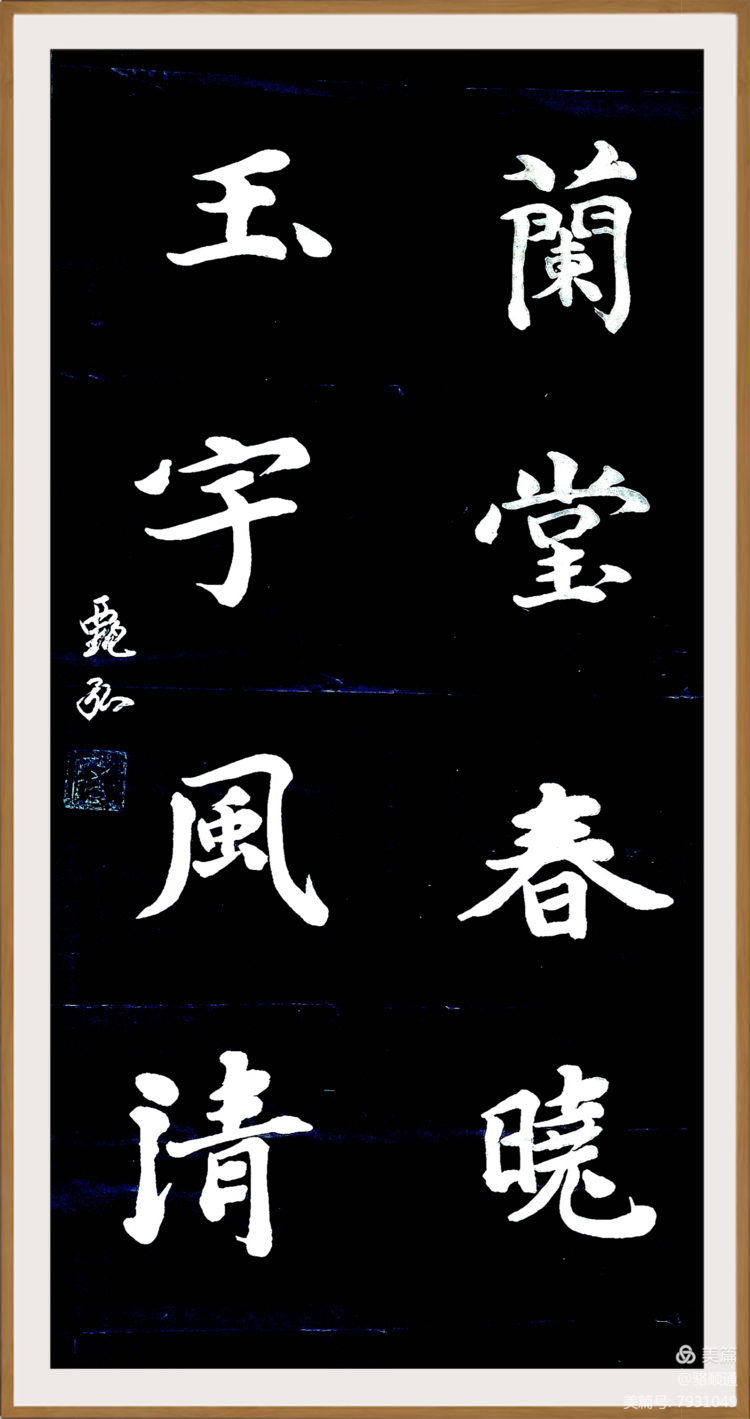 蘭堂春曉
玉宇風清
甄弘
美篇
美篇号: 7931049